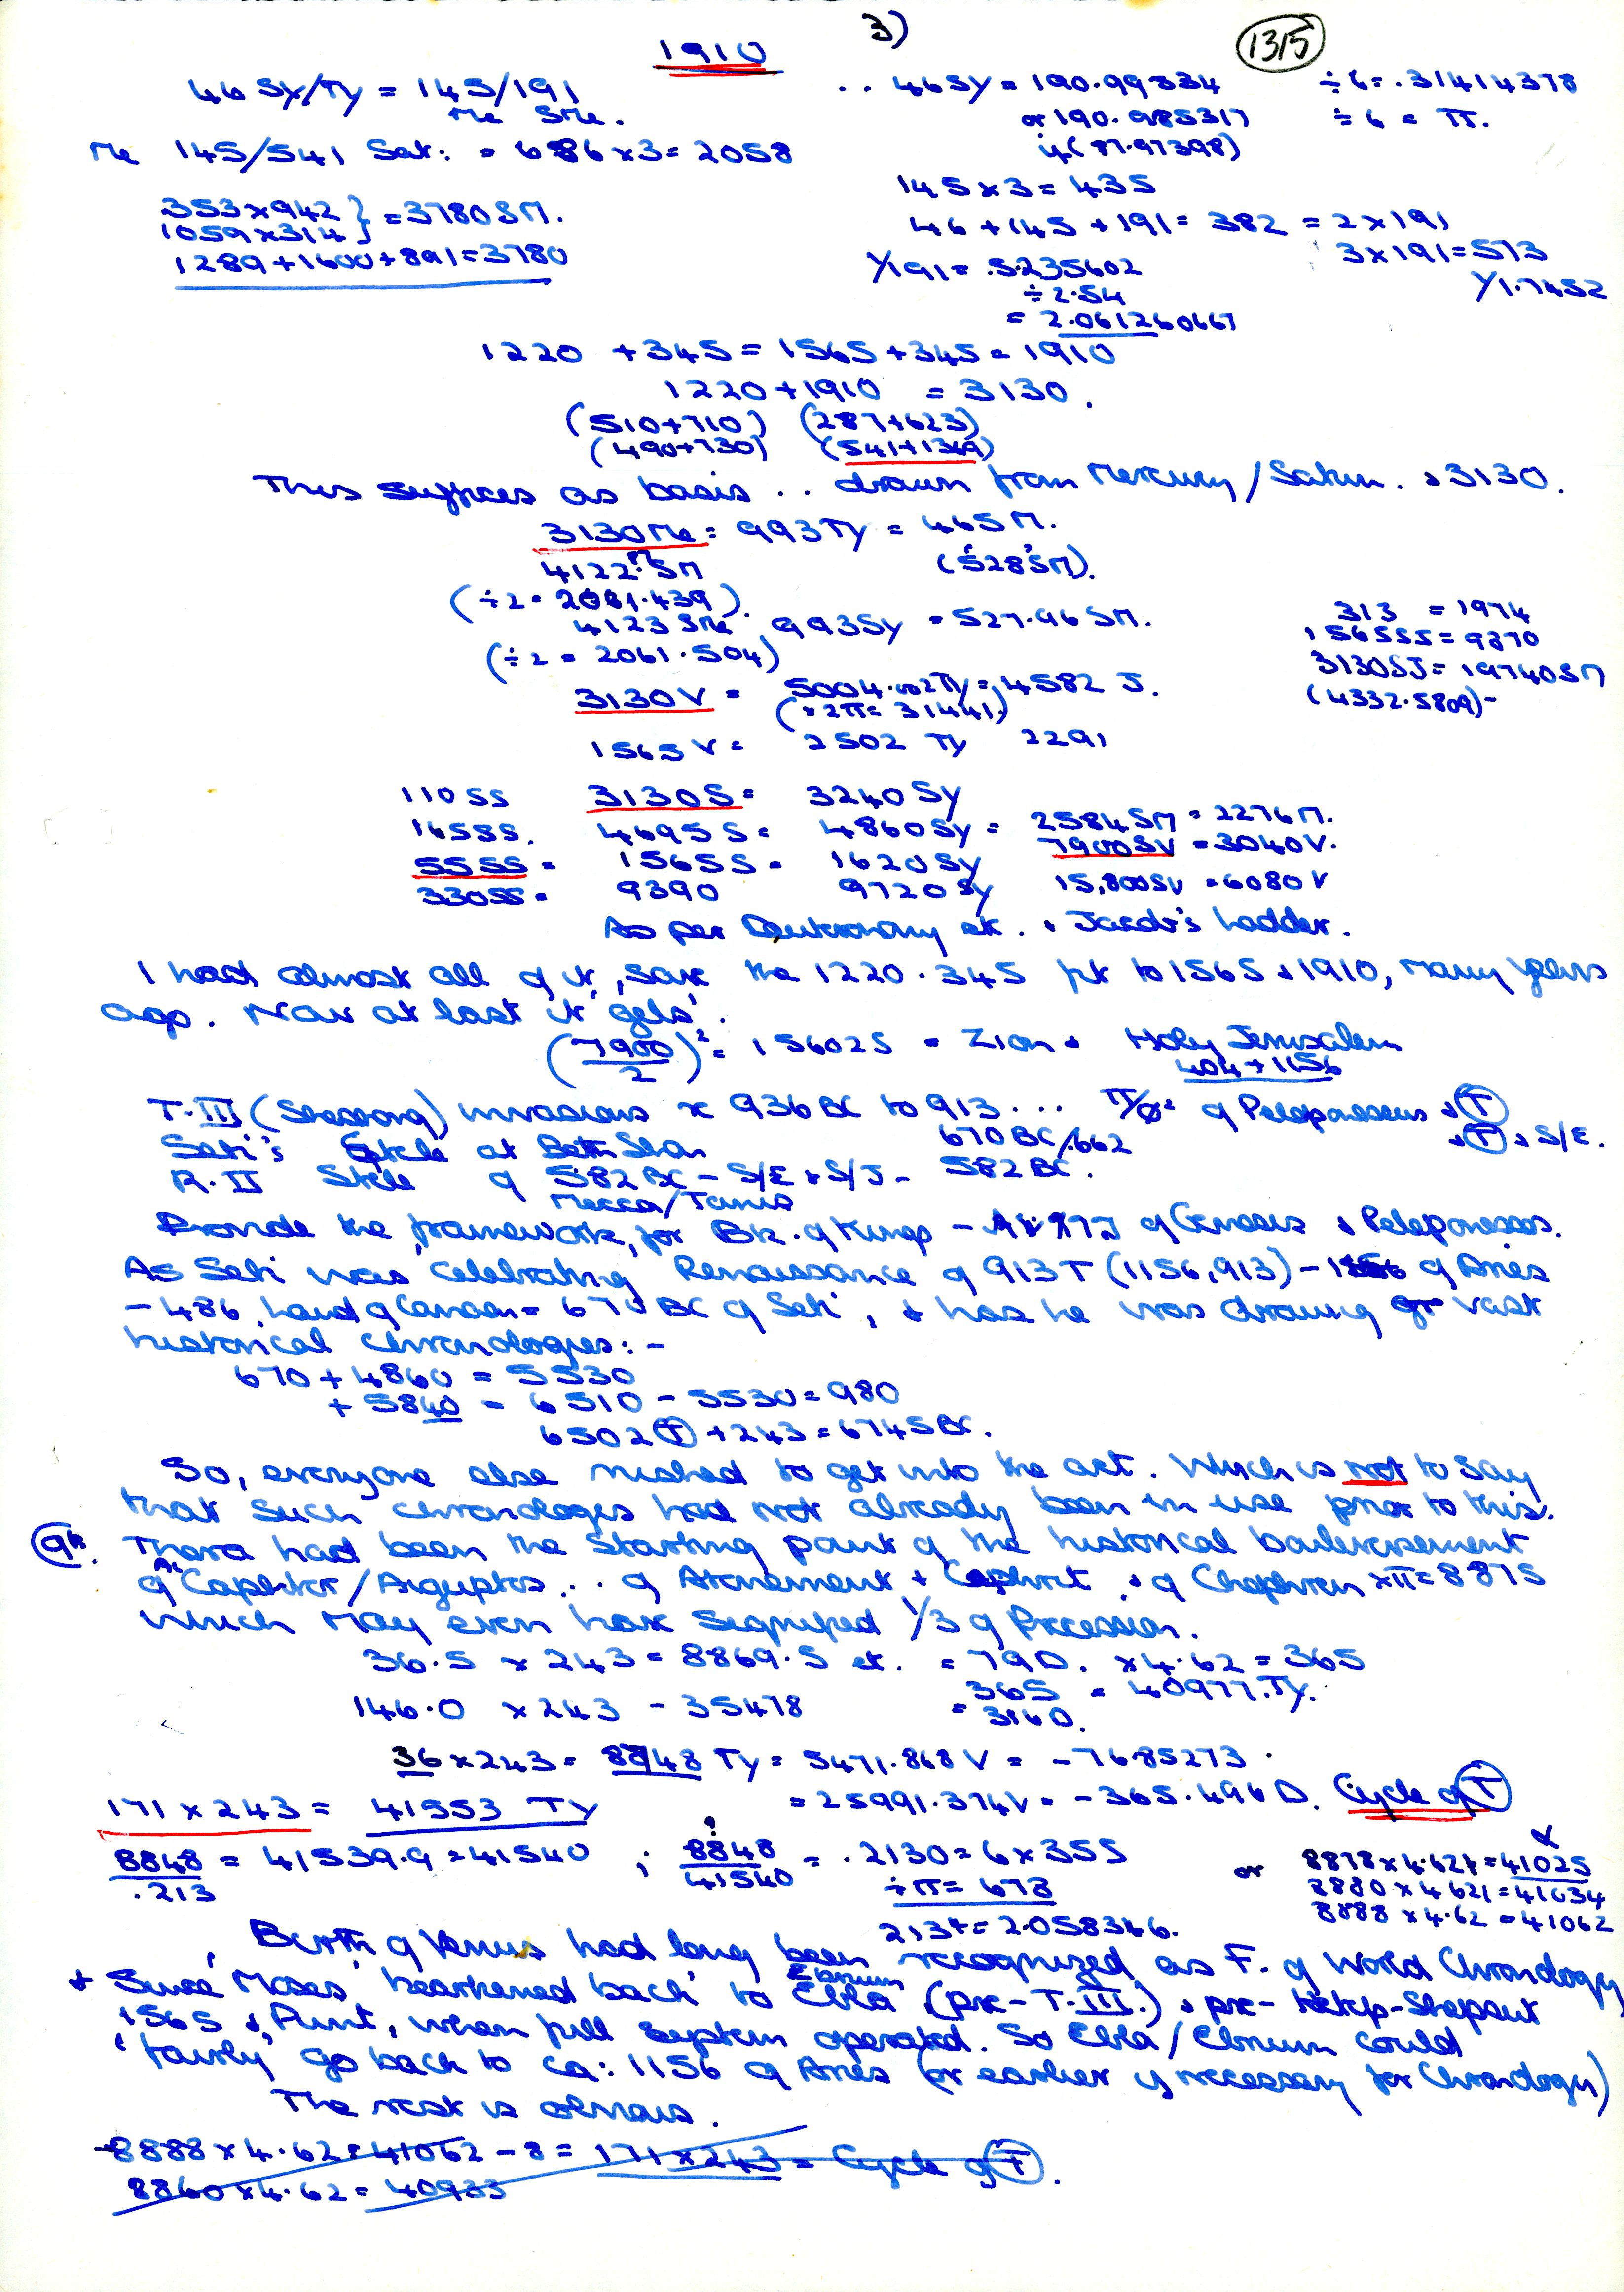 3)
1315
1910
46 Sy/Ty = 145/191
Me SMe.
.. 46Sy = 190.99834 ÷6 = .31414378
or 190.985317 ÷ 6 = π.
if (87.97398)
Me 145/541 Sat: = 686 x 3 = 2058
145 x 3 = 435
353 x 942 } = 3780 SM.
1059 x 314 }
1289 + 1600 + 891 = 3780
46 + 145 + 191 = 382 = 2 x 191
3 x 191 = 573
Y/191 = .5235602
Y/1.7452
÷ 2.54
= 2.061260667
1220 + 345 = 1565 + 345 = 1910
1220 + 1910 = 3130.
(510+710) (287+623)
(490+730) (541+1369)
This suffices as basis .. drawn from Mercury / Saturn. & 3130.
3130 Me = 993 Ty = 465 M.
4122. SM (528 SM).
(÷2 = 2061.439).
4123 SMe 993 Sy = 527.96 SM.
(÷2 = 2061.504)
313 = 1974
1565SS = 9870
3130SJ = 19740SM
(4332.5809)-
3130V = 5004.002Ty = 4582 J.
(x 2π = 31441)
1565 V = 2502 Ty 2291
110 SS 3130S = 3240 Sy
165SS. 4695 S = 4860 Sy = 2584SM = 2276 M.
55 SS = 1565S = 1620 Sy 7900SV = 3040V.
330SS = 9390 9720 Sy 15,800SV = 6080 V
As per Deuteronomy etc. & Jacob's Ladder.
I had almost all of it, save the 1220.345 fit to 1565 & 1910, many years
ago. Now at last it 'gels'.
(7900/2)² = 156025 = Zion & Holy Jerusalem
404 + 1156
T.III (Shoshonq) invasions x 936 BC to 913 ... π/Ø² of Peloponessus & (T)
670 BC/.662 & (T) & S/E.
Seti's Stele at Beth Shan
R.II Stele of 582 BC - S/E & S/J - 582 BC.
Mecca / Tanis
Provide the framework, for Bk. of Kings - of Genesis & Peloponesos.
As Seti was 'celebrating' Renaissance of 913 T (1156, 913) - of Aries
- 486, land of Canaan = 670 BC of Seti, & has he was drawing vast
historical chronologies: -
670 + 4860 = 5530
+ 5840 = 6510 - 5530 = 980
6502 (T) + 243 = 6745 BC.
So, everyone else rushed to get into the act. Which is not to say
that such chronologies had not already been in use prior to this.
Thera had been the starting point of the historical bouleversement
of Caphtor / Aiguptos .. of Atonement + & of Chephren x π = 8875
which may even have signified 1/3 of Precession.
36.5 x 243 = 8869.5 et. = 79D. x 4.62 = 365
146.0 x 243 - 35478 = 365 = 40977.Ty.
= 3160.
36 x 243 = 8748 Ty = 5471.868 V = - 7685273.
171 x 243 = 41553 Ty = 25991.374V = - 365.496 D. Cycle of (T)
8848/.213 = 41539.9 = 41540 ; 8848/41540 = .2130 = 6 x 355
÷ π = 678
or 8878 x 4.621 = 41025
8880 x 4.621 = 41034
8888 x 4.62 = 41062
2134 = 2.058346.
'Birth of Venus' had long been recognized as F. of World Chronology
& Since Moses 'hearkened back' to Ebla (Ebrium) (pre-T.III.) & pre-Hatchepshepsut
1565 & Punt, when full system operated. So Ebla / Ebrium could
'fairly' go back to ca: 1156 of Aries (or earlier if necessary for Chronology)
The rest is obvious.
8888 x 4.62 = 41062 - 8 = 171 x 243 = Cycle of (T).
8860 x 4.62 = 40933